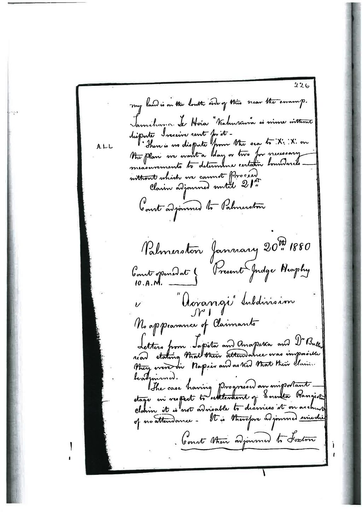 226
my land is on the south side of this near the swamp.
Tamehana Te Hoia "Kahuwera" is mine without
dispute I receive rent for it.
ALL
There is no dispute from the sea to "X", "X" on
the plan we want a day or two for necessary
measurements to determine certain boundaries
without which we cannot proceed
Claim adjourned until 21st
Court adjourned to Palmerston
Palmerston January 20th 1880
Court opened at
10. A.M.
Present Judge Heaphy
"Aorangi" Subdivision
No 1
No appearance of Claimants
Letters from Tapita and Anaperea and Dr Buller
read stating that their attendance was impossible
they were in Napier and asked that their claim
be adjourned.
The case having progressed an important
stage in respect to settlement of Enereta Rangiotu
claim it is not advisable to dismiss it on account
of no attendance. It is therefore adjourned
Court then adjourned to Foxton